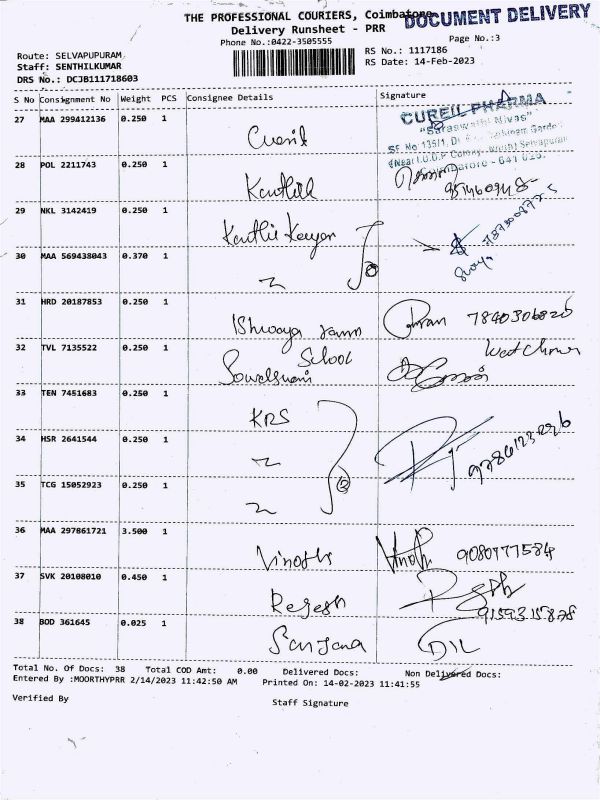 THE PROFESSIONAL COURIERS, Coimbatore
DOCUMENT DELIVERY
Delivery Runsheet - PRR
Phone No.:0422-3505555
Page No.:3
Route: SELVAPUPURAM
RS No.: 1117186
Staff: SENTHILKUMAR
RS Date: 14-Feb-2023
DRS No.: DCJB111718603
S No Consignment No Weight PCS Consignee Details Signature
27 MAA 299412136 0.250 1
CUREIL PHARMA
"Saraswathi Nivas"
Cureil
28 POL 2211743 0.250 1
29 NKL 3142419 0.250 1
30 MAA 569438043 0.370 1
31 HRD 20187853 0.250 1
Ishwarya
32 TVL 7135522 0.250 1
School
33 TEN 7451683 0.250 1
KRS
34 HSR 2641544 0.250 1
35 TCG 15052923 0.250 1
36 MAA 297861721 3.500 1
Vinoth 9080777584
37 SVK 20108010 0.450 1
Regesh
38 BOD 361645 0.025 1
Sanjana
Total No. Of Docs: 38 Total COD Amt: 0.00 Delivered Docs: Non Delivered Docs:
Entered By :MOORTHYPRR 2/14/2023 11:42:50 AM Printed On: 14-02-2023 11:41:55
Verified By
Staff Signature